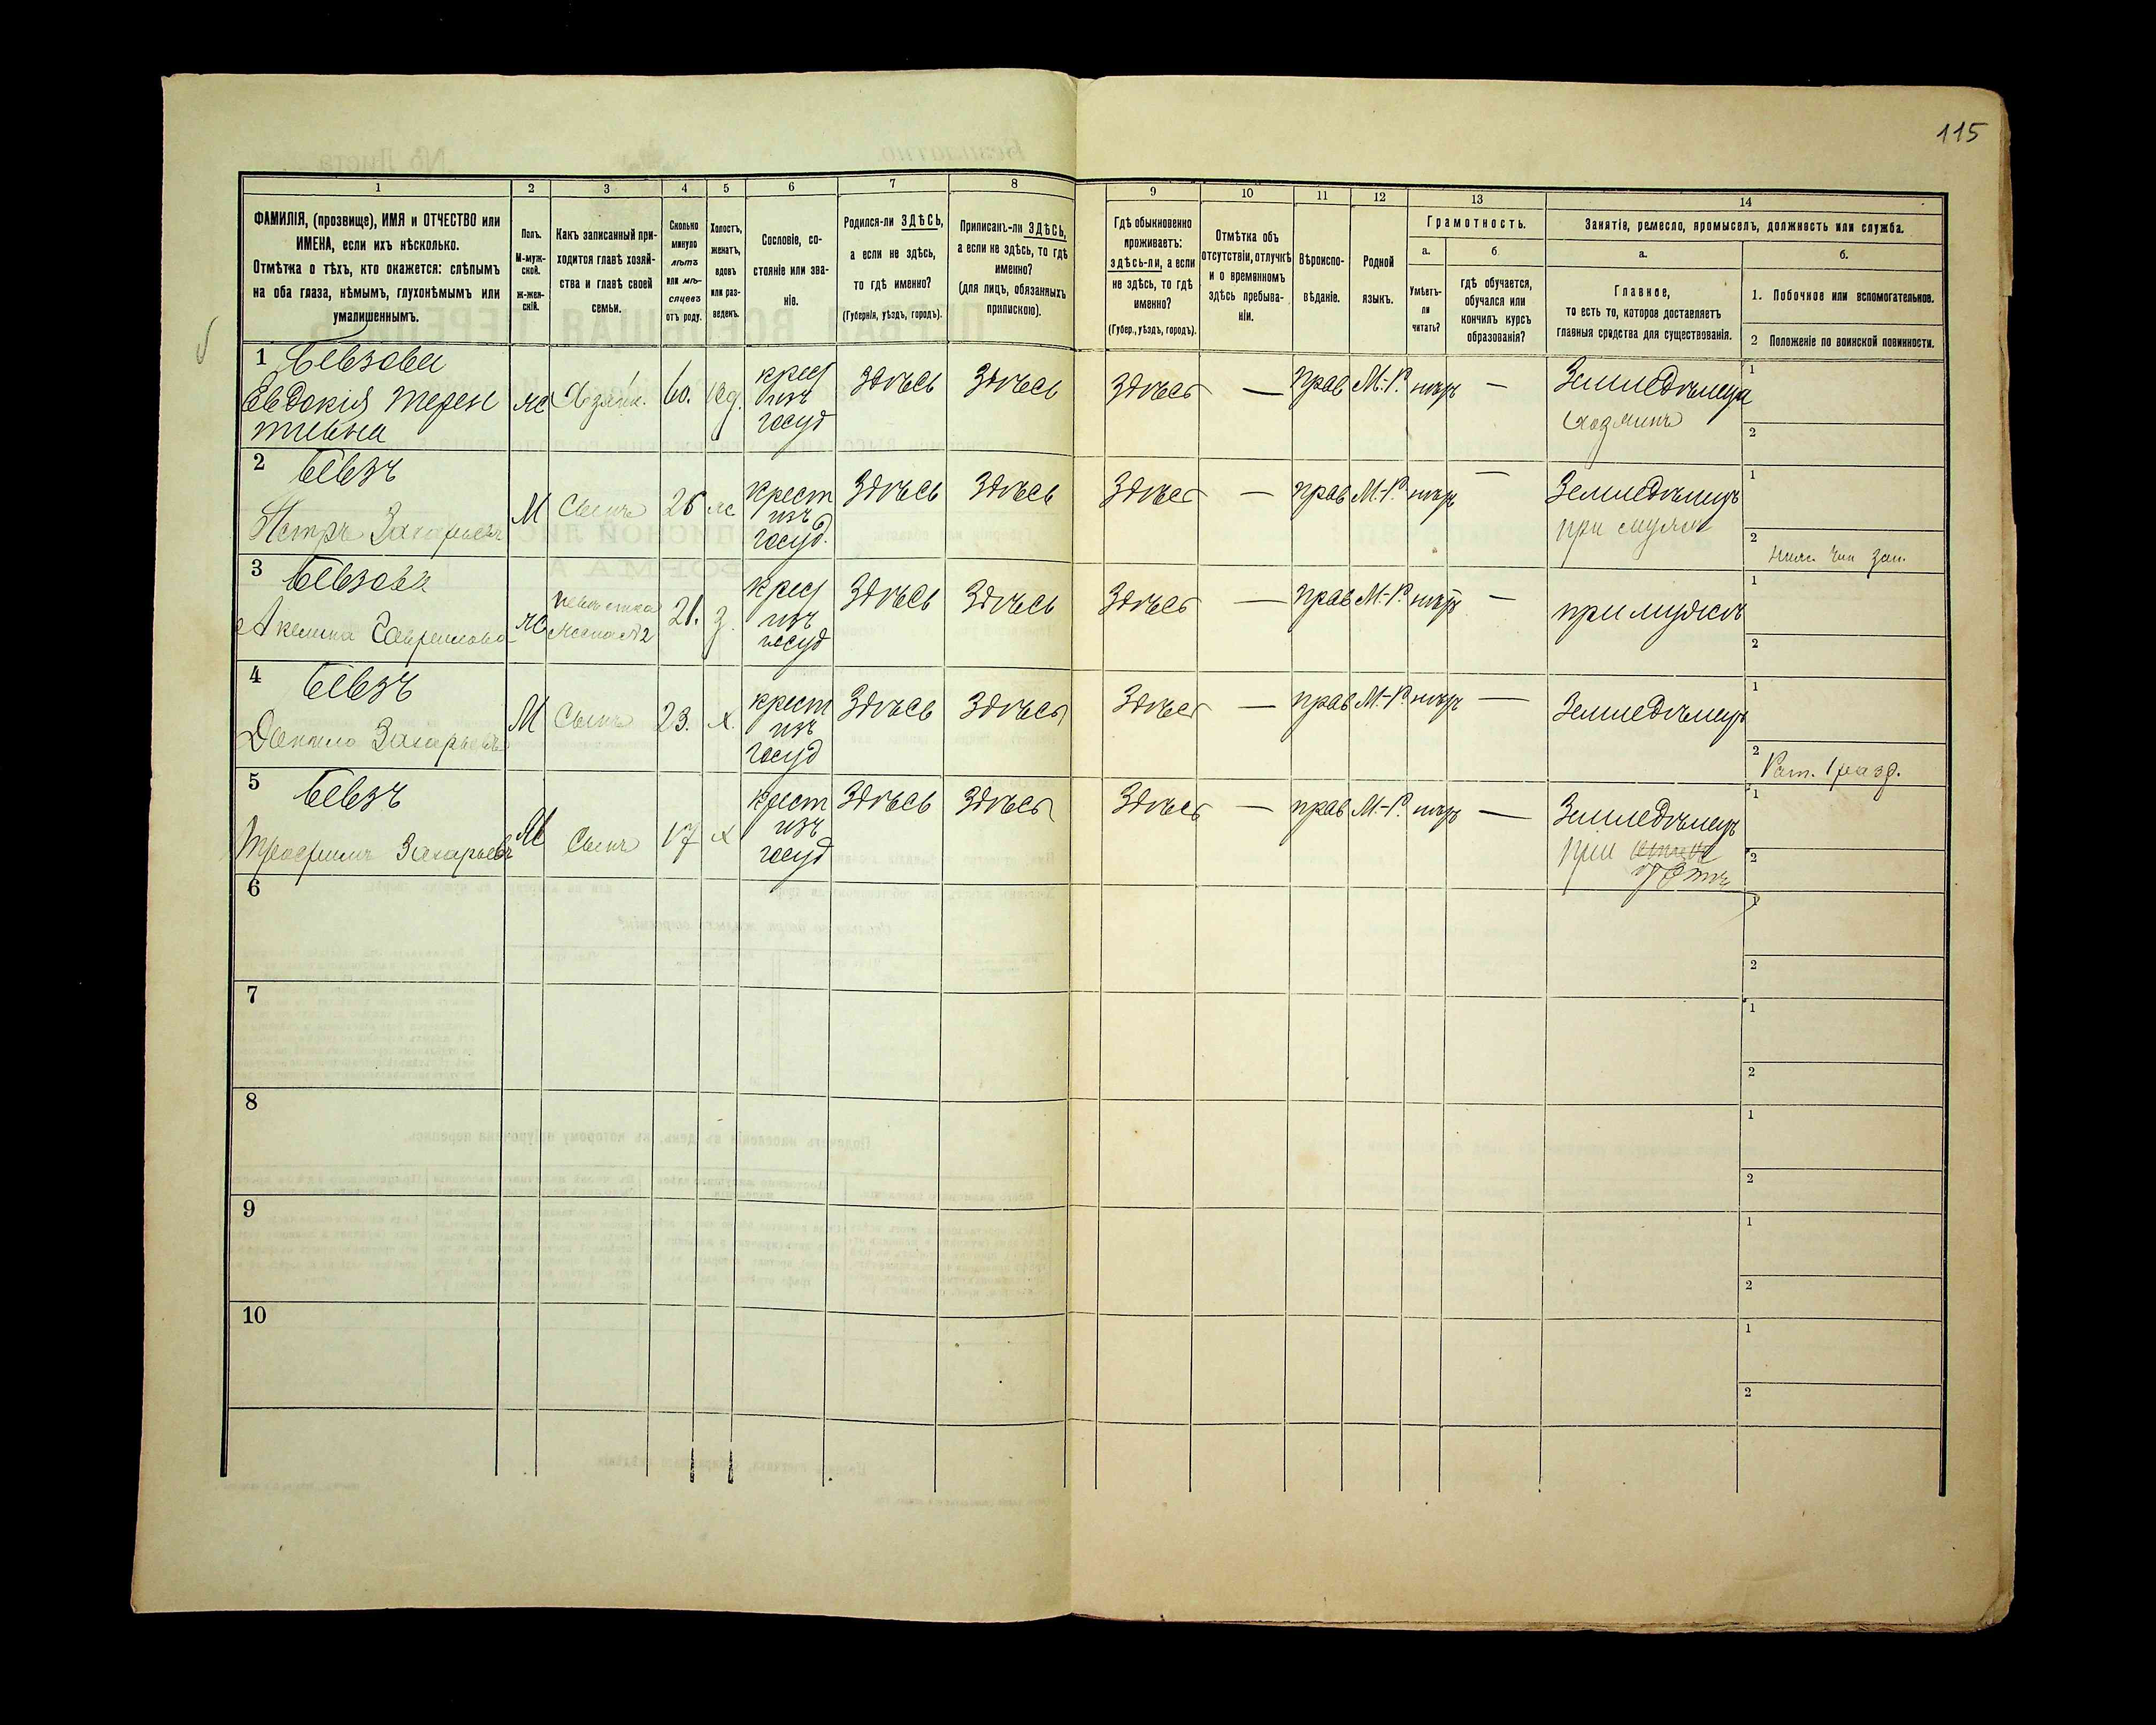 115
1 2 3 4 5 6 7 8 9 10 11 12 13 14
ФАМИЛІЯ, (прозвище), ИМЯ и ОТЧЕСТВО или
ИМЕНА, если ихъ нѣсколько.
Отмѣтка о тѣхъ, кто окажется: слѣпымъ
на оба глаза, нѣмымъ, глухонѣмымъ или
умалишеннымъ.
Полъ.
М-муж-
ской.
Ж-жен-
скій.
Какъ записанный при-
ходится главѣ хозяй-
ства и главѣ своей
семьи.
Сколько
минуло
лѣтъ
или мѣ-
сяцевъ
отъ роду.
Холостъ,
женатъ,
вдовъ
или раз-
веденъ.
Сословіе, со-
стояніе или зва-
ніе.
Родился-ли ЗДѢСЬ,
а если не здѣсь,
то гдѣ именно?
(Губернія, уѣздъ, городъ).
Приписанъ-ли ЗДѢСЬ,
а если не здѣсь, то гдѣ
именно?
(для лицъ, обязанныхъ
припискою).
Гдѣ обыкновенно
проживаетъ:
здѣсь-ли, а если
не здѣсь, то гдѣ
именно?
(Губер., уѣздъ, городъ).
Отмѣтка объ
отсутствіи, отлучкѣ
и о временномъ
здѣсь пребыва-
ніи.
Вѣроиспо-
вѣданіе.
Родной
языкъ.
Грамотность.
а.
Умѣетъ-
ли
читать?
б.
гдѣ обучается,
обучался или
кончилъ курсъ
образованія?
Занятія, ремесло, промыселъ, должность или служба.
а.
Главное,
то есть то, которое доставляетъ
главныя средства для существованія.
б.
1. Побочное или вспомогательное.
2 Положеніе по воинской повинности.
1 Бевзова
Евдокія Терен
тьевна
ж Хозяйк. 60. вд.
крест
изъ
госуд
Здѣсь Здѣсь Здѣсь — прав М.-Р. нѣтъ —
Земледѣлецъ
хозяинъ
1
2
2 Бевзъ
Петръ Захарьевъ
М Сынъ 26 ж
крест
изъ
госуд.
Здѣсь Здѣсь Здѣсь — прав М.-Р. нѣтъ —
Земледѣлецъ
1
2
3 Бевзова
Акелина Гавриилова
ж невѣстка
жена №2
21. з.
крест
изъ
госуд
Здѣсь Здѣсь Здѣсь — прав М.-Р. нѣтъ —
при мужѣ
1
2
4 Бевзъ
Данило Захарьевъ
М Сынъ 23. х.
крест
изъ
госуд
Здѣсь Здѣсь Здѣсь — прав М.-Р. нѣтъ —
Земледѣлецъ
1
2 Рат. 1 разд.
5 Бевзъ
Трофимъ Захарьевъ
М Сынъ 17 х
крест
изъ
госуд
Здѣсь Здѣсь Здѣсь — прав М.-Р. нѣтъ —
Земледѣлецъ
при
1
2
6
1
2
7
1
2
8
1
2
9
1
2
10
1
2